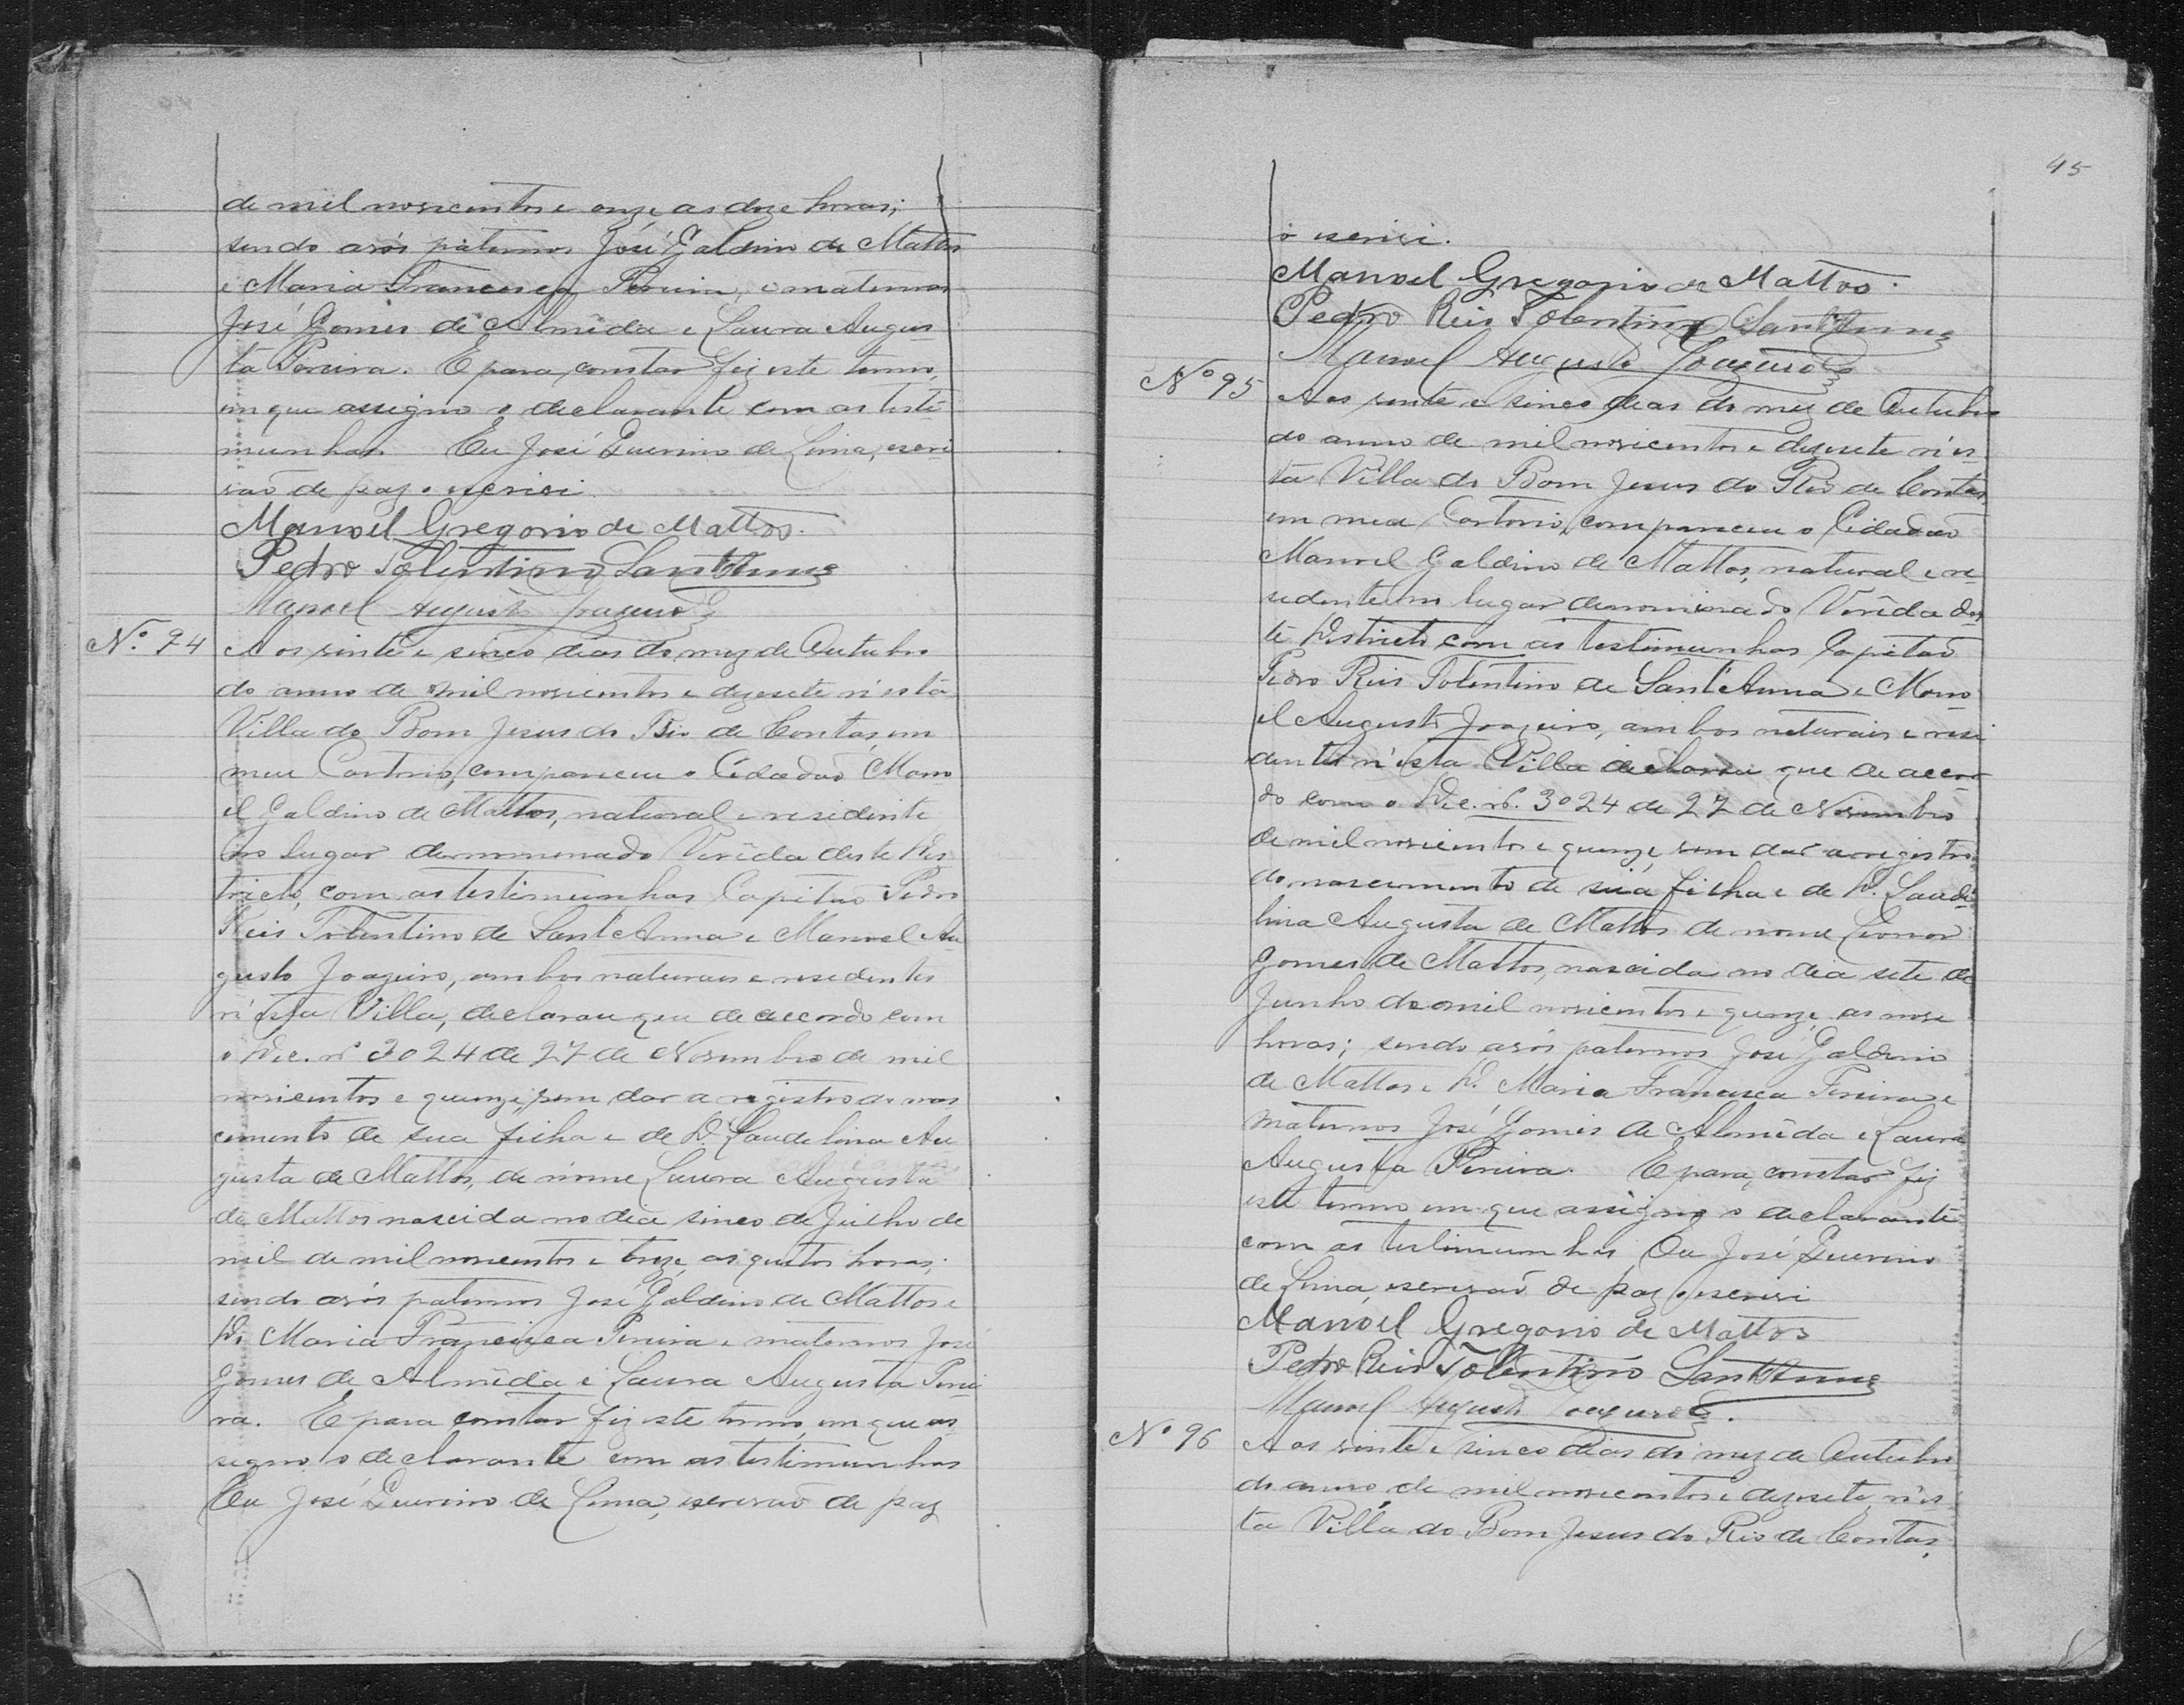 de mil novicentos e onze as doze horas;
sendo avós paternos José Galdino de Mattos
e Maria Francisca Pereira, e maternos
José Gomes de Almêida e Laura Augus-
ta Pereira. E para constar fiz este termo,
em que assigno o declarante com as teste-
munhas. Eu José Guerino de Lima, escri-
vaõ de paz o escrivi.
Manoel Gregorio de Mattos.
Pedro Tolentino SantAnna
Manoel Augusto Joazeiro
Nº. 94 Aos vinte e sinco dias do mez de Outubro
do anno de mil novicentos e dezesete n'esta
Villa do Bom Jesus do Rio de Contas, em
meu Cartorio, compareceu o Cidadaõ Mano-
el Galdino de Mattos, natural e residente
no lugar denominado Verêda deste Dis-
tricto, com as testimunhas Capitaõ Pedro
Reis Tolentino de Sant'Anna e Manoel Au-
gusto Joazeiro, ambos naturais e residentes
n'esta Villa, declarou que de accordo com
o Dec. nº 3024 de 27 de Novembro de mil
novicentos e quinze, vem dar a registro do nas-
cimento de sua filha e de D. Laudelina Au-
gusta de Mattos, de nome Laura Augusta
de Mattos nascida no dia sinco de Julho de
mil de mil novicentos e treze, as quatro horas;
sendo avós paternos José Galdino de Mattos e
D. Maria Francisca Pereira e maternos José
Gomes de Almêida e Laura Augusta Perei-
ra. E para constar fiz este termo, em que as-
segno o declarante com as testimunhas
Eu José Guerino de Lima, escrivaõ de paz
45
o escrivi.
Manoel Gregorio de Mattos.
Pedro Reis Tolentino SantAnna
Manoel Augusto Joazeiro
Nº 95 Aos vinte e sinco dias do mez de Outubro
do anno de mil novicentos e dezesete n'es-
ta Villa do Bom Jesus do Rio de Contas,
em meu Cartorio, compareceu o Cidadaõ
Manoel Galdino de Mattos, natural e re-
sidente no lugar denominado Verêda des-
te Districto com as testimunhas Capitaõ
Pedro Reis Tolentino de Sant'Anna e Mano-
el Augusto Joazeiro, ambos naturais e resi-
dentes n'esta Villa declarou que de accor-
do com o Dec. nº. 3024 de 27 de Novembro
de mil novicentos e quinze, vem dar a registro
do nascimento de sua filha e de D. Laude-
lina Augusta de Mattos de nome Leonor
Gomes de Mattos, nascida no dia sete de
Junho de mil novicentos e quinze, as nove
horas; sendo avós paternos José Galdino
de Mattos e D. Maria Francisca Pereira e
maternos José Gomes de Almêida e Laura
Augusta Pereira. E para constar fiz
este termo em que assigno o declarante
com as testimunhas, Eu José Guerino
de Lima, escrivaõ de paz o escrivi
Manoel Gregorio de Mattos
Pedro Reis Tolentino SantAnna
Manoel Augusto Joazeiro.
Nº 96 Aos vinte e sinco dias do mez de Outubro
do anno de mil novicentos e dezesete n'es-
ta Villa do Bom Jesus do Rio de Contas,